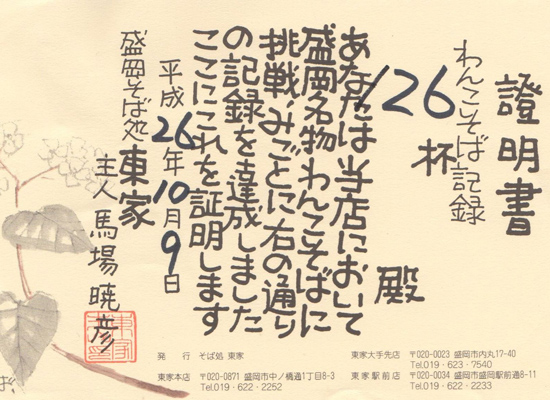 證明書
わんこそば記録
126杯
殿
あなたは当店において
盛岡名物わんこそばに
挑戦、みごとに右の通り
の記録を達成しました
ここにこれを証明します
平成26年10月9日
盛岡そば処 東家
主人 馬場暁彦
発 行 そば処 東家
東家本店 〒020-0871 盛岡市中ノ橋通1丁目8-3
Tel.019・622・2252
東家大手先店 〒020-0023 盛岡市内丸17-40
Tel.019・623・7540
東家駅前店 〒020-0034 盛岡市盛岡駅前通8-11
Tel.019・622・2233